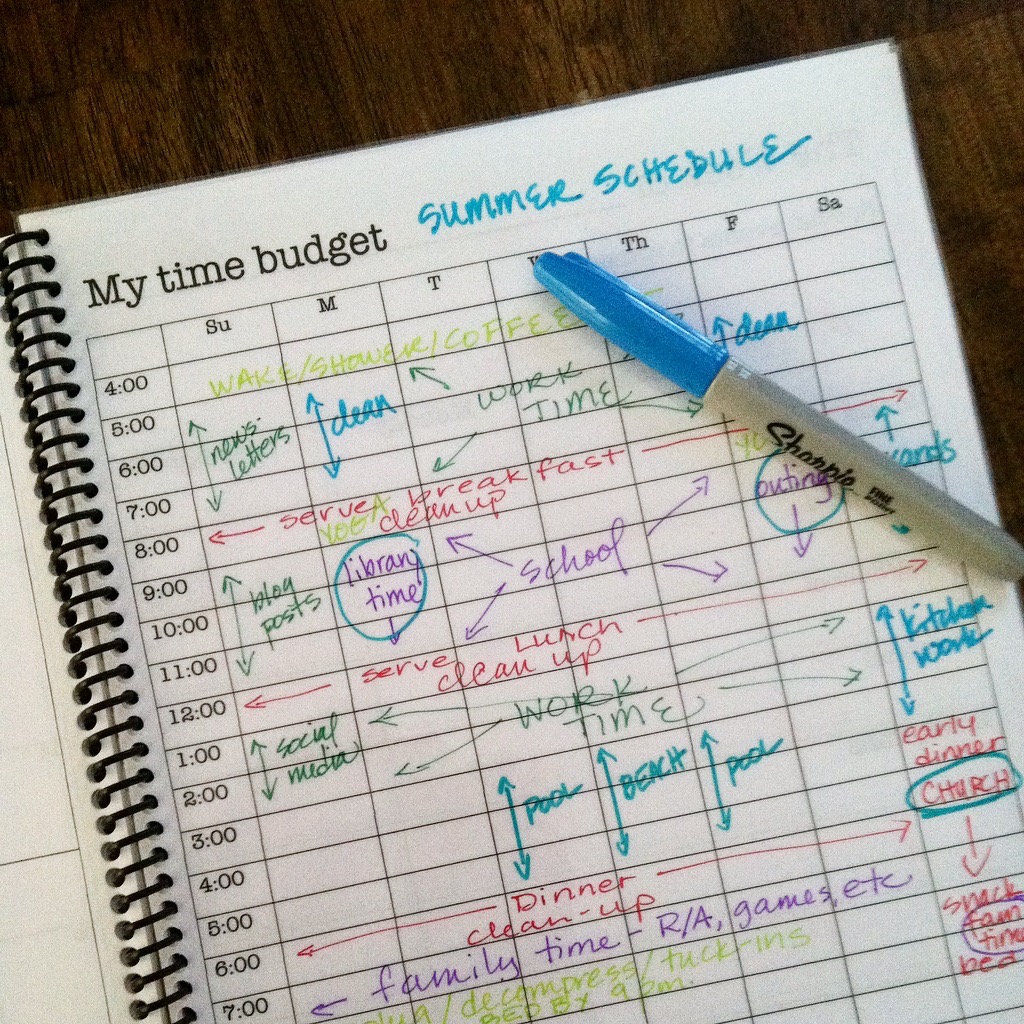 SUMMER SCHEDULE
My time budget
Su M T Th F Sa
4:00
WAKE/SHOWER/COFFEE
clean
5:00
news
letters
clean
WORK
TIME
6:00
7:00
serve breakfast
clean up
YOGA
outing
8:00
9:00
blog
posts
library
time
school
10:00
11:00
serve LUNCH
clean up
kitchen
work
12:00
WORK
TIME
1:00
social
media
early
dinner
2:00
POOL
BEACH
POOL
CHURCH
3:00
4:00
5:00
Dinner
clean-up
snack
fam
time
bed
6:00
family time - R/A, games, etc
7:00
/decompress/tuck-ins
BED BY 9 pm.
Sharpie
FINE